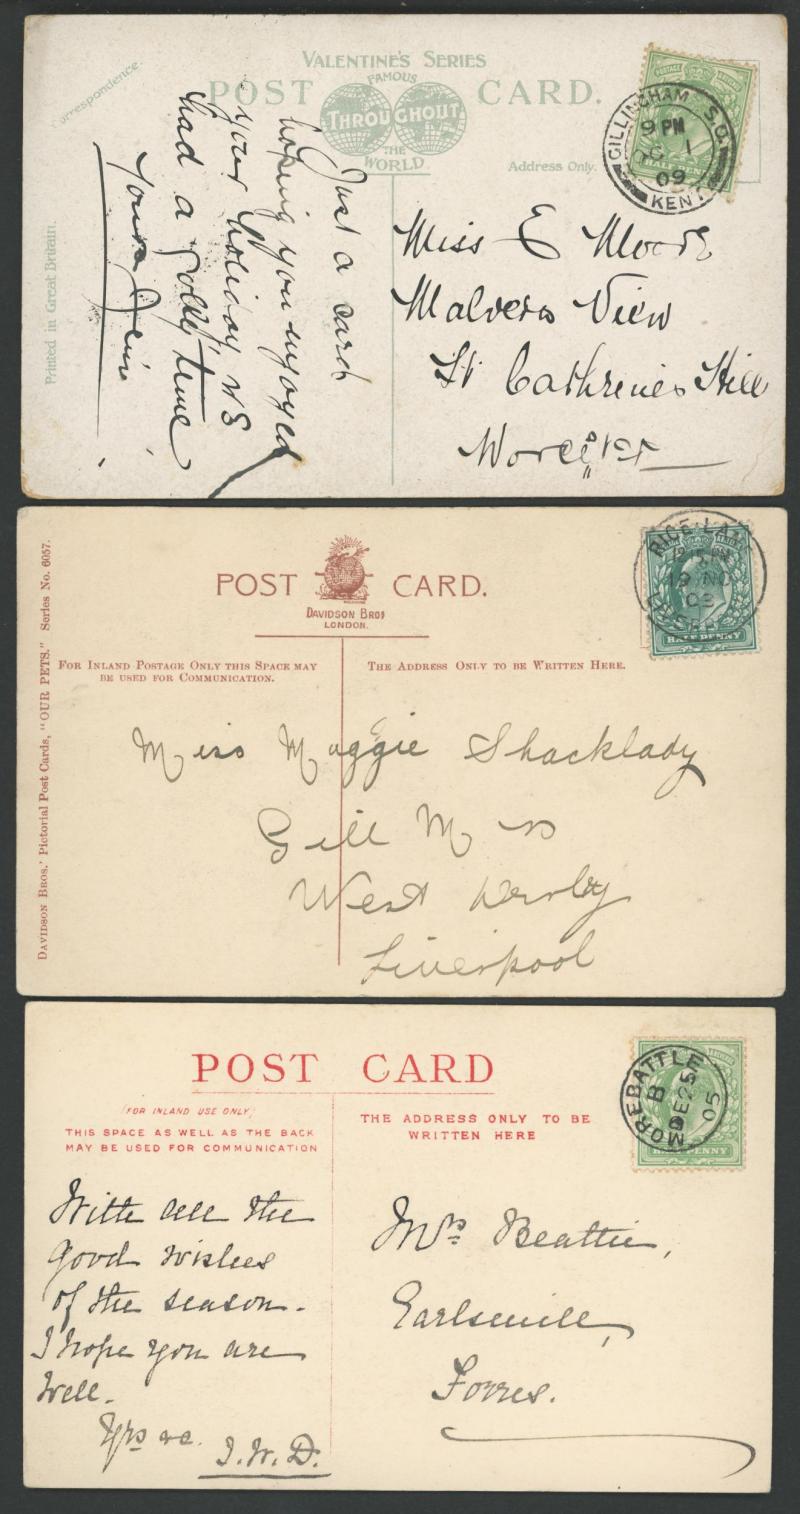 Correspondence.
VALENTINE'S SERIES
POST CARD.
FAMOUS
THROUGHOUT
THE
WORLD
Address Only.
Printed in Great Britain.
GILLINGHAM S.O.
9 PM
1
09
KENT
POSTAGE
Just a card
hoping you enjoyed
your holiday &
had a jolly time
Yours
Miss E Moore
Malvern View
St Cathrines Hill
Worcester
POST CARD.
DAVIDSON BROS
LONDON.
FOR INLAND POSTAGE ONLY THIS SPACE MAY
BE USED FOR COMMUNICATION.
THE ADDRESS ONLY TO BE WRITTEN HERE.
DAVIDSON BROS.' Pictorial Post Cards, "OUR PETS." Series No. 6057.
RICE·LANE
19 NO
HALF PENNY
Miss Maggie Shacklady
Gill M
West Derby
Liverpool
POST CARD
(FOR INLAND USE ONLY)
THIS SPACE AS WELL AS THE BACK
MAY BE USED FOR COMMUNICATION
THE ADDRESS ONLY TO BE
WRITTEN HERE
MOREBATTLE
B
DE 25
05
HALF PENNY
With all the
good wishes
of the season.
I hope you are
well.
Yrs &c.
J.W.D.
Mrs Beattie,
Earlsmill,
Forres.